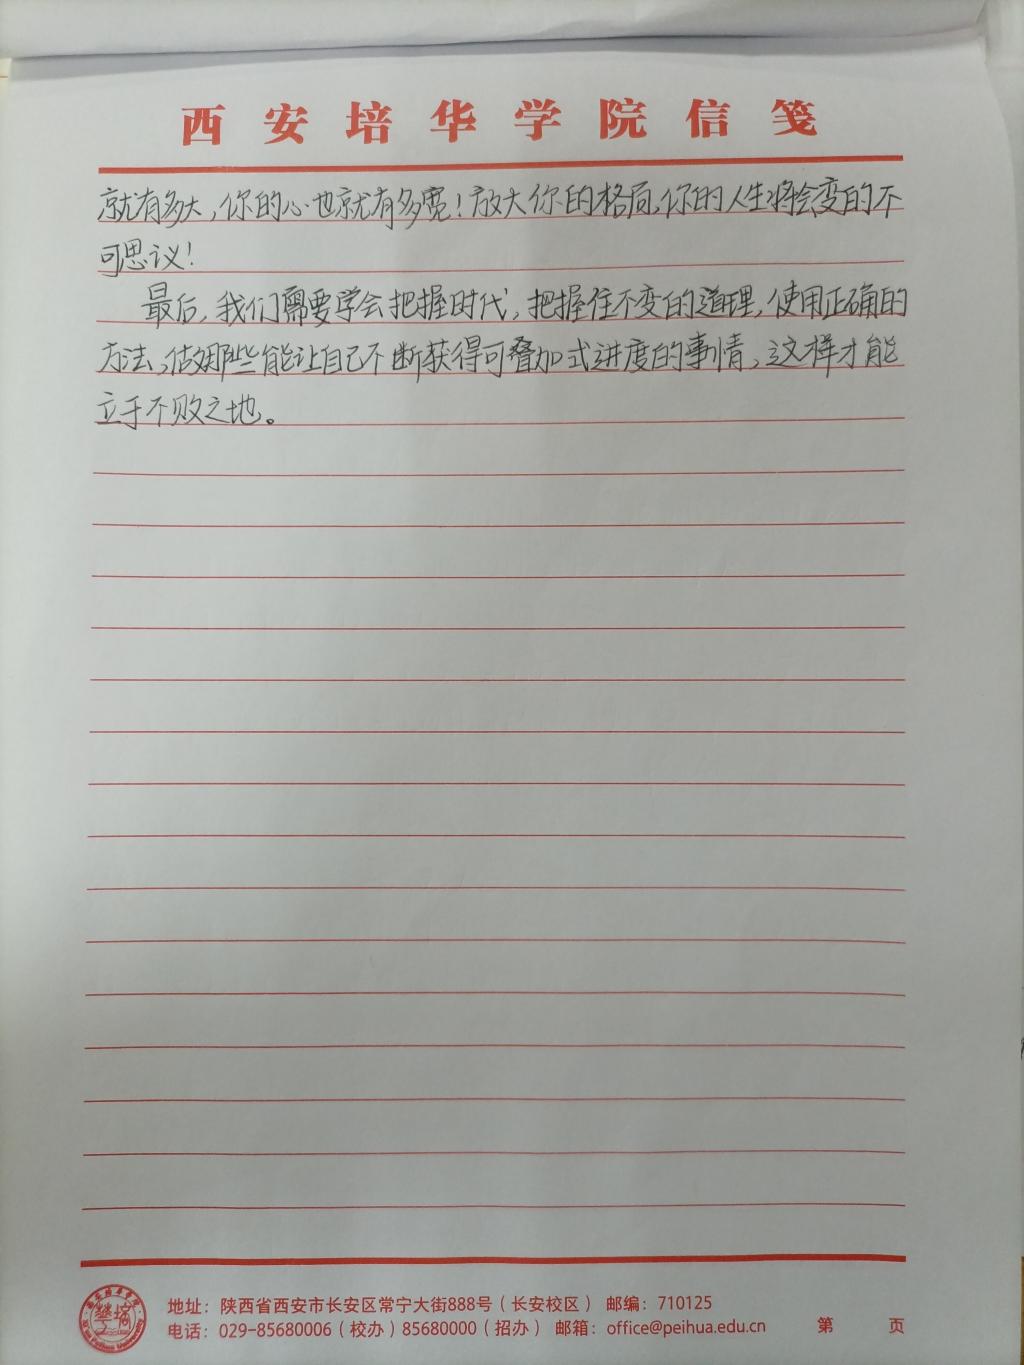 西安培华学院信笺
就有多大，你的心也就有多宽！放大你的格局，你的人生将会变的不
可思议！
最后，我们需要学会把握时代，把握住不变的道理，使用正确的
方法，做那些能让自己不断获得可叠加式进度的事情，这样才能
立于不败之地。
地址：陕西省西安市长安区常宁大街888号（长安校区） 邮编：710125
电话：029-85680006（校办）85680000（招办） 邮箱：office@peihua.edu.cn 第 页